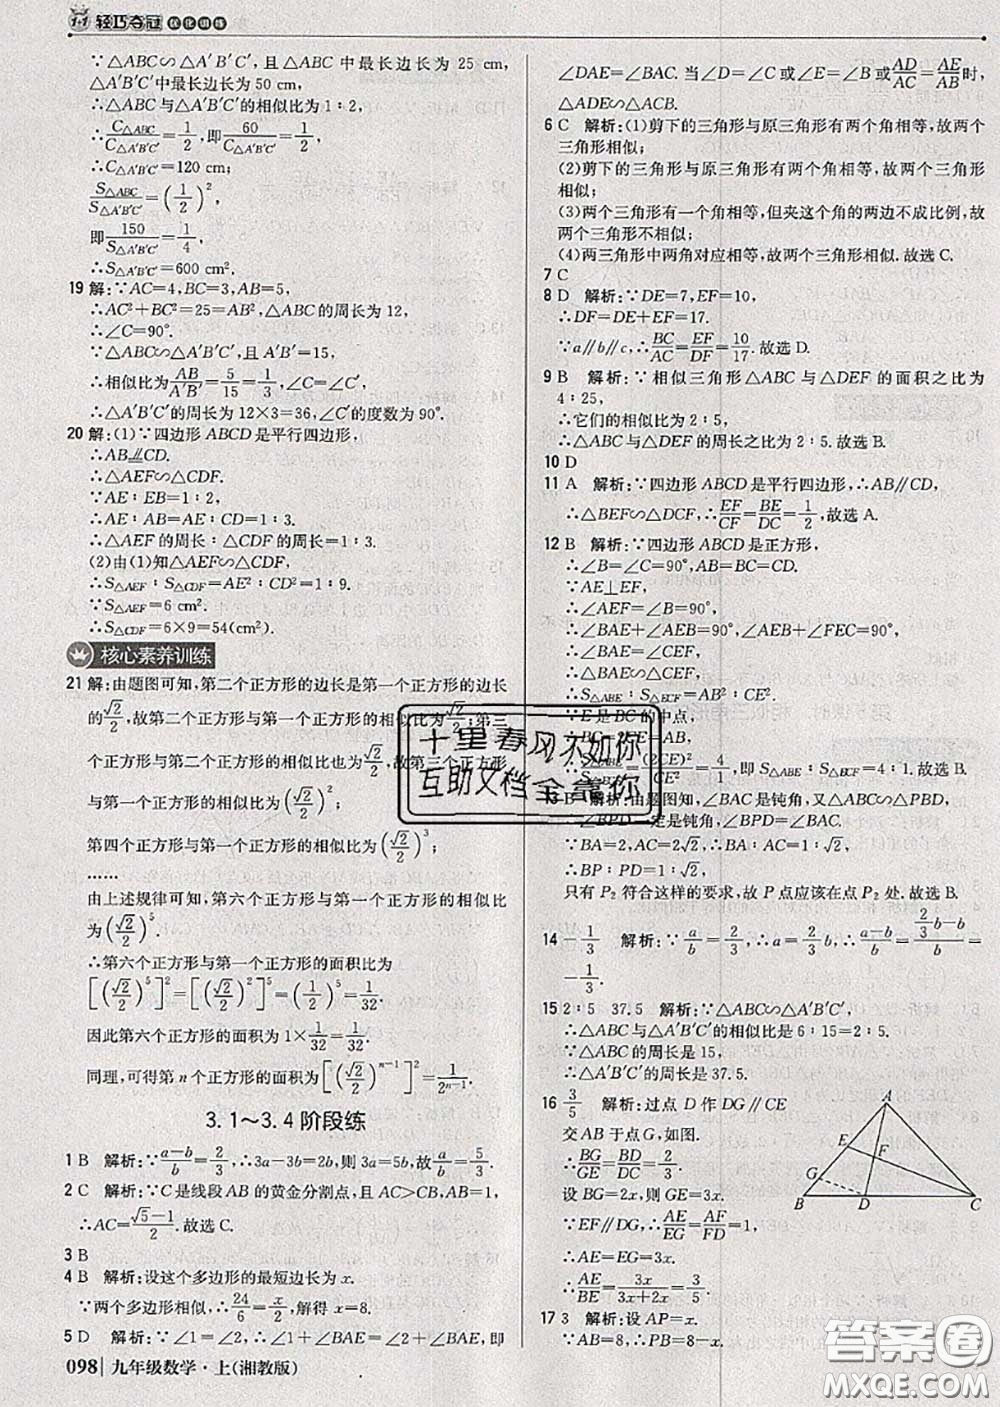 1+1 轻巧夺冠 优化训练
∵△ABC∽△A′B′C′,且△ABC 中最长边长为 25 cm,
△A′B′C′中最长边长为 50 cm,
∴△ABC与△A′B′C′的相似比为1∶2,
∴C△ABC/C△A′B′C′=1/2,即60/C△A′B′C′=1/2,
∴C△A′B′C′=120 cm;
S△ABC/S△A′B′C′=(1/2)²,
即150/S△A′B′C′=1/4,
∴S△A′B′C′=600 cm².
19 解:∵AC=4,BC=3,AB=5,
∴AC²+BC²=25=AB²,△ABC的周长为12,
∴∠C=90°.
∵△ABC∽△A′B′C′,A′B′=15,
∴相似比为AB/A′B′=5/15=1/3,∠C=∠C′,
∴△A′B′C′的周长为12×3=36,∠C′的度数为90°.
20 解:(1)∵四边形ABCD是平行四边形,
∴AB∥CD.
∴△AEF∽△CDF.
∵AE∶EB=1∶2,
∴AE∶AB=AE∶CD=1∶3.
∴△AEF的周长∶△CDF的周长=1∶3.
(2)由(1)知△AEF∽△CDF,
∴S△AEF∶S△CDF=AE²∶CD²=1∶9.
∵S△AEF=6 cm²,
∴S△CDF=6×9=54(cm²).
核心素养训练
21 解:由题图可知,第二个正方形的边长是第一个正方形的边长
的√2/2,故第二个正方形与第一个正方形的相似比为√2/2;第三
个正方形与第二个正方形的相似比也为√2/2,故第三个正方形
与第一个正方形的相似比为(√2/2)²;
第四个正方形与第一个正方形的相似比为(√2/2)³;
……
由上述规律可知,第六个正方形与第一个正方形的相似比
为(√2/2)⁵.
∴第六个正方形与第一个正方形的面积比为
[(√2/2)⁵]²=[(√2/2)²]⁵=(1/2)⁵=1/32.
因此第六个正方形的面积为1×1/32=1/32.
同理,可得第n个正方形的面积为[(√2/2)ⁿ⁻¹]²=1/2ⁿ⁻¹.
3.1～3.4阶段练
1 B 解析:∵a−b/b=2/3,∴3a−3b=2b,则3a=5b,故a/b=5/3.
2 C 解析:∵C是线段AB的黄金分割点,且AC>CB,AB=1,
∴AC=√5−1/2.故选C.
3 B
4 B 解析:设这个多边形的最短边长为x.
∵两个多边形相似,∴24/6=x/2,解得x=8.
5 D 解析:∵∠1=∠2,∴∠1+∠BAE=∠2+∠BAE,即
098 九年级数学·上(湘教版)
∠DAE=∠BAC.当∠C=∠D或∠E=∠B或AD/AC=AE/AB时,
△ADE∽△ACB.
6 C 解析:(1)剪下的三角形与原三角形有两个角相等,故两个
三角形相似;
(2)剪下的三角形与原三角形有两个角相等,故两个三角形
相似;
(3)两个三角形有一个角相等,但夹这个角的两边不成比例,故
两个三角形不相似;
(4)两三角形中两角对应相等,故两个三角形相似.故选C.
7 C
8 D 解析:∵DE=7,EF=10,
∴DF=DE+EF=17.
∵a∥b∥c,∴BC/AC=EF/DF=10/17.故选D.
9 B 解析:∵相似三角形△ABC与△DEF的面积之比为
4∶25,
∴它们的相似比为2∶5,
∴△ABC与△DEF的周长之比为2∶5.故选B.
10 D
11 A 解析:∵四边形ABCD是平行四边形,∴AB∥CD,
∴△BEF∽△DCF,∴EF/CF=BE/DC=1/2,故选A.
12 B 解析:∵四边形ABCD是正方形,
∴∠B=∠C=90°,AB=BC=CD.
∵AE⊥EF,
∴∠AEF=∠B=90°,
∴∠BAE+∠AEB=90°,∠AEB+∠FEC=90°,
∴∠BAE=∠FEC,
∴△BAE∽△CEF,
∴S△ABE∶S△ECF=AB²∶CE².
∵E是BC的中点,
∴BC=2CE=AB,
∴S△ABE/S△ECF=(2CE)²/CE²=4/1,即S△ABE∶S△ECF=4∶1.故选B.
13 B 解析:由题图知,∠BAC是钝角,又△ABC∽△PBD,
∴∠BPD一定是钝角,∠BPD=∠BAC.
∵BA=2,AC=2√2,∴BA∶AC=1∶√2,
∴BP∶PD=1∶√2,
只有P₂符合这样的要求,故P点应该在P₂处.故选B.
14 −1/3 解析:∵a/b=2/3,∴a=2/3b,∴a−b/b=2/3b−b/b=
−1/3.
15 2∶5 37.5 解析:∵△ABC∽△A′B′C′,
∴△ABC与△A′B′C′的相似比是6∶15=2∶5.
∵△ABC的周长是15,
∴△A′B′C′的周长是37.5.
16 3/5 解析:过点D作DG∥CE
交AB于点G,如图.
∴BG/GE=BD/DC=2/3.
设BG=2x,则GE=3x.
∵EF∥DG,∴AE/EG=AF/FD=1,
∴AE=EG=3x.
∴AE/BE=3x/3x+2x=3/5.
A
E
F
G
B
D
C
17 3 解析:设AP=x.
∵AB=8,∴PB=8−x.
十里春风不如你
互助文档全靠你
答案圈
MXQE.COM